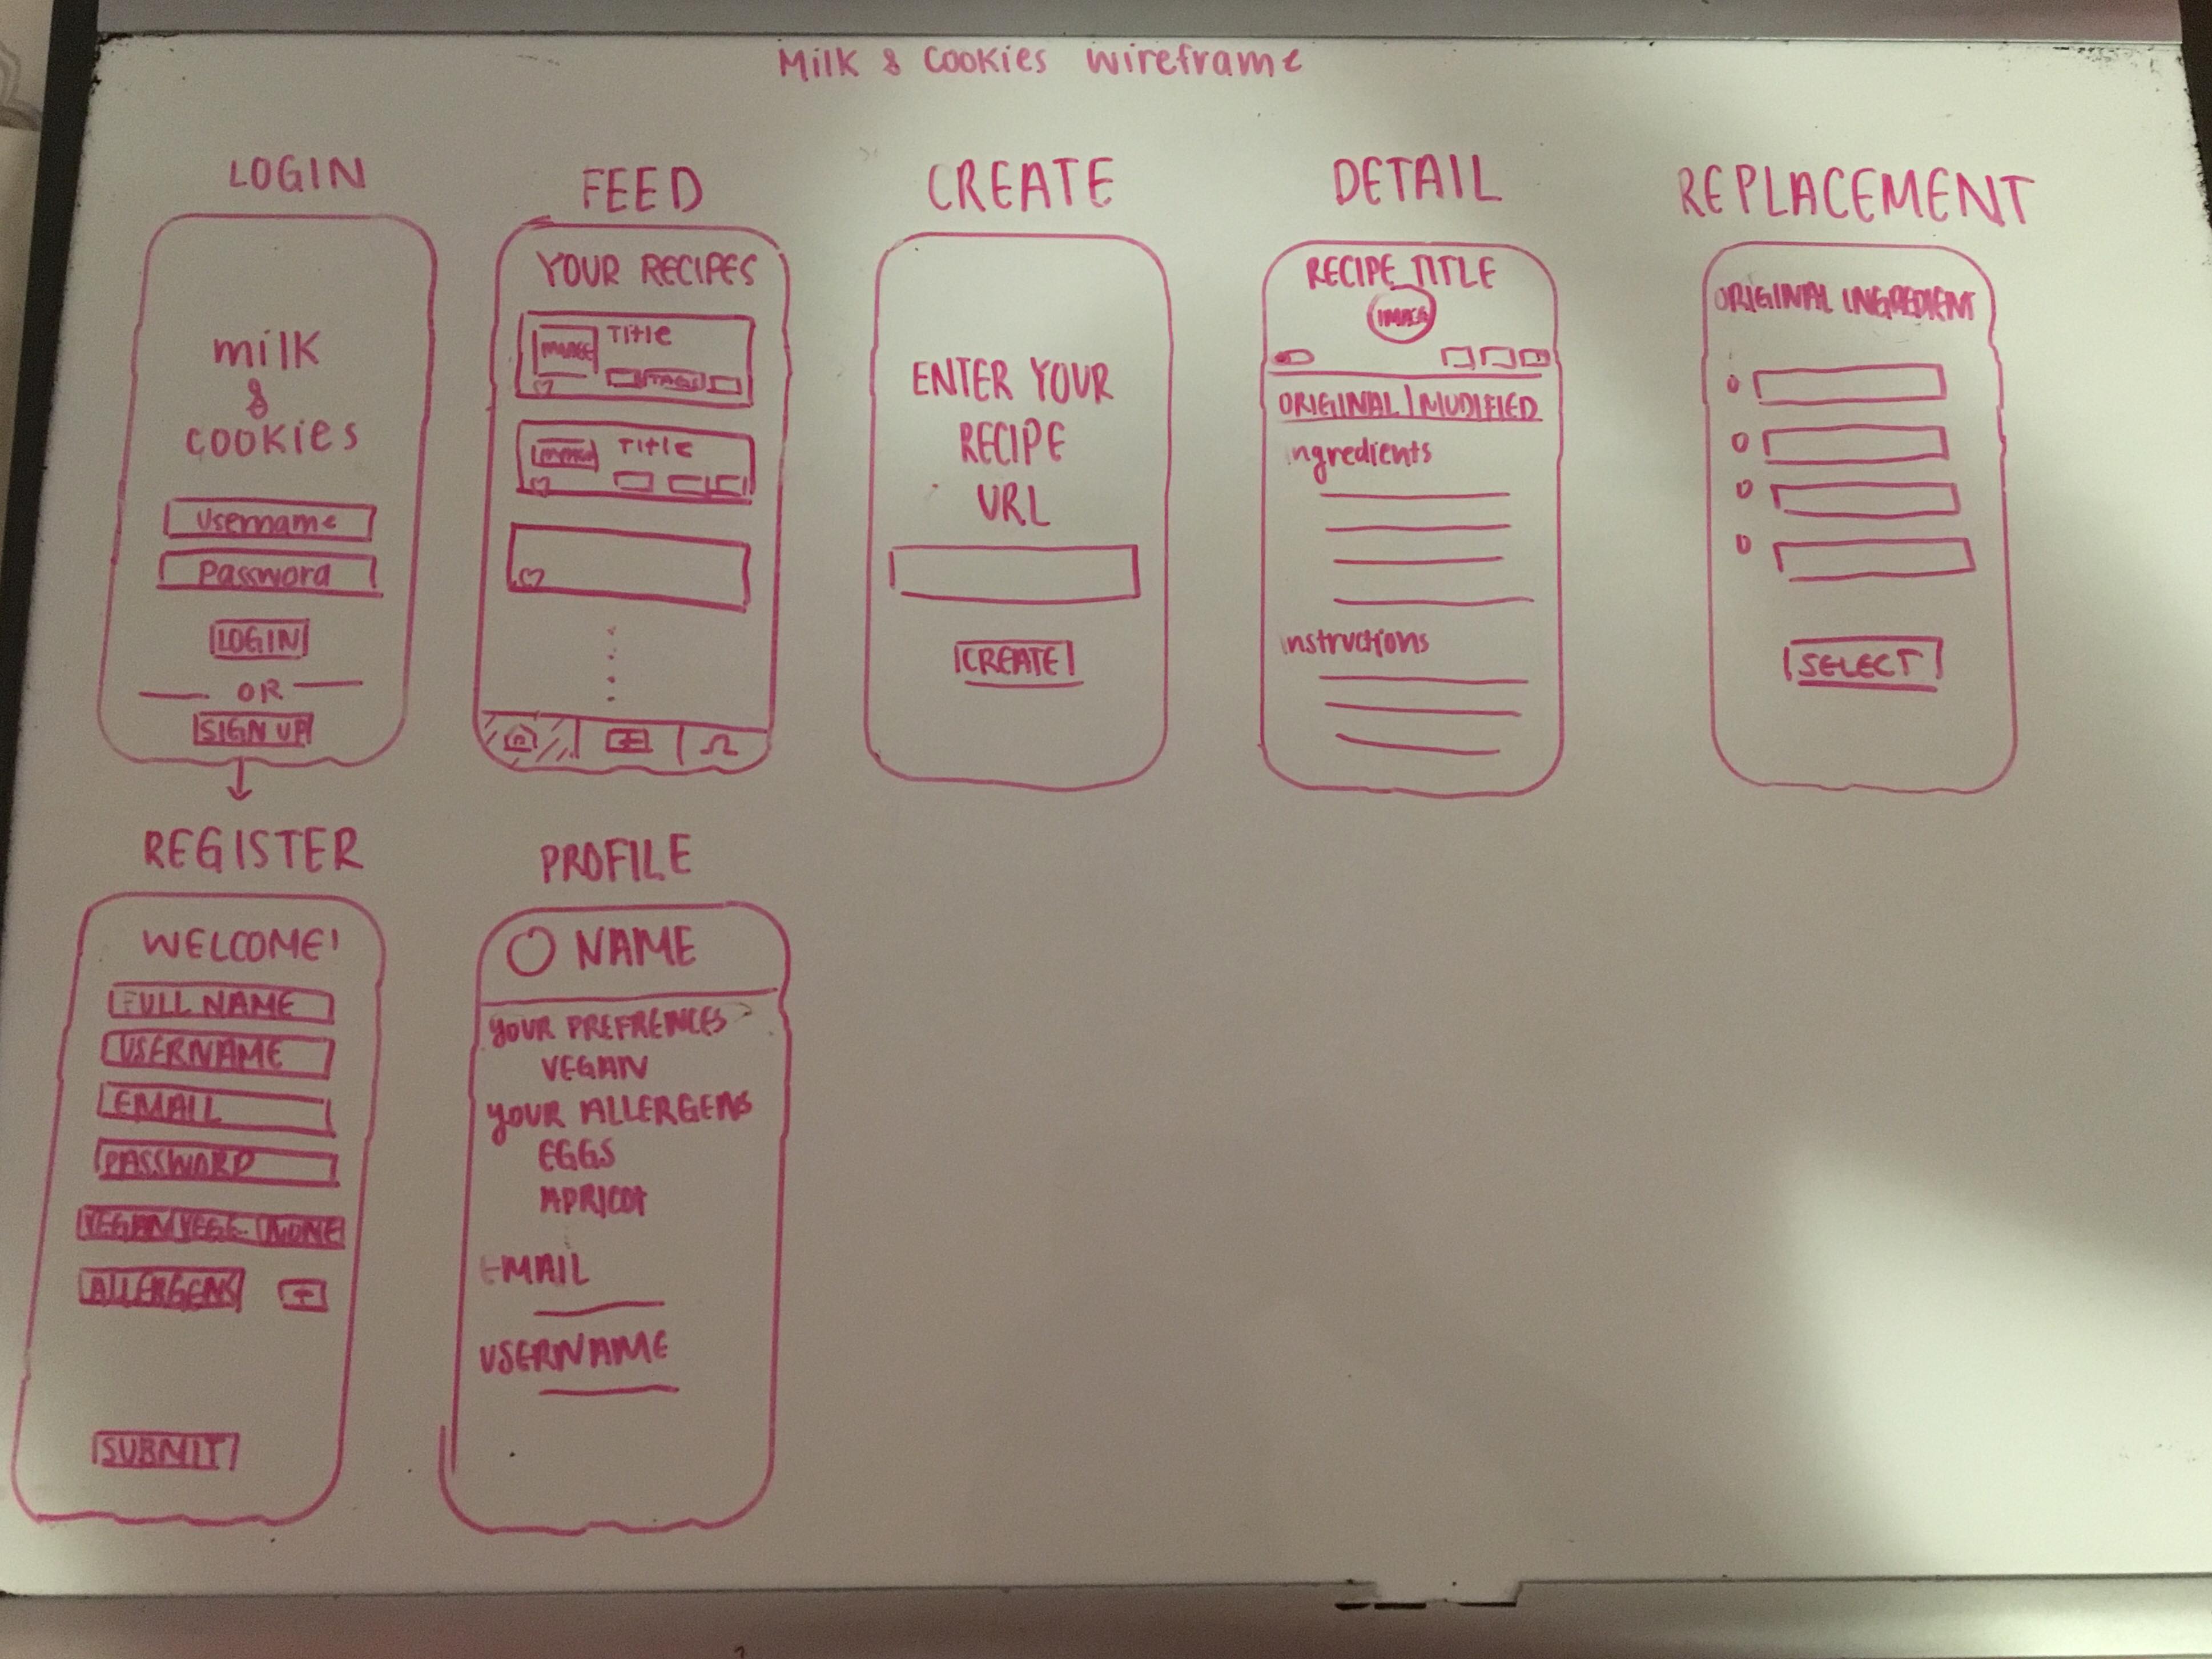 Milk & Cookies Wireframe
LOGIN
milk
&
cookies
Username
Password
LOGIN
OR
SIGN UP
FEED
YOUR RECIPES
IMAGE
Title
TAGS
IMAGE
Title
CREATE
ENTER YOUR
RECIPE
URL
CREATE
DETAIL
RECIPE TITLE
IMAGE
ORIGINAL | MODIFIED
ingredients
instructions
REPLACEMENT
ORIGINAL INGREDIENT
SELECT
REGISTER
WELCOME!
FULL NAME
USERNAME
EMAIL
PASSWORD
VEGAN VEGE. NONE
ALLERGENS +
SUBMIT
PROFILE
NAME
YOUR PREFRENCES
VEGAN
YOUR ALLERGENS
EGGS
APRICOT
EMAIL
USERNAME